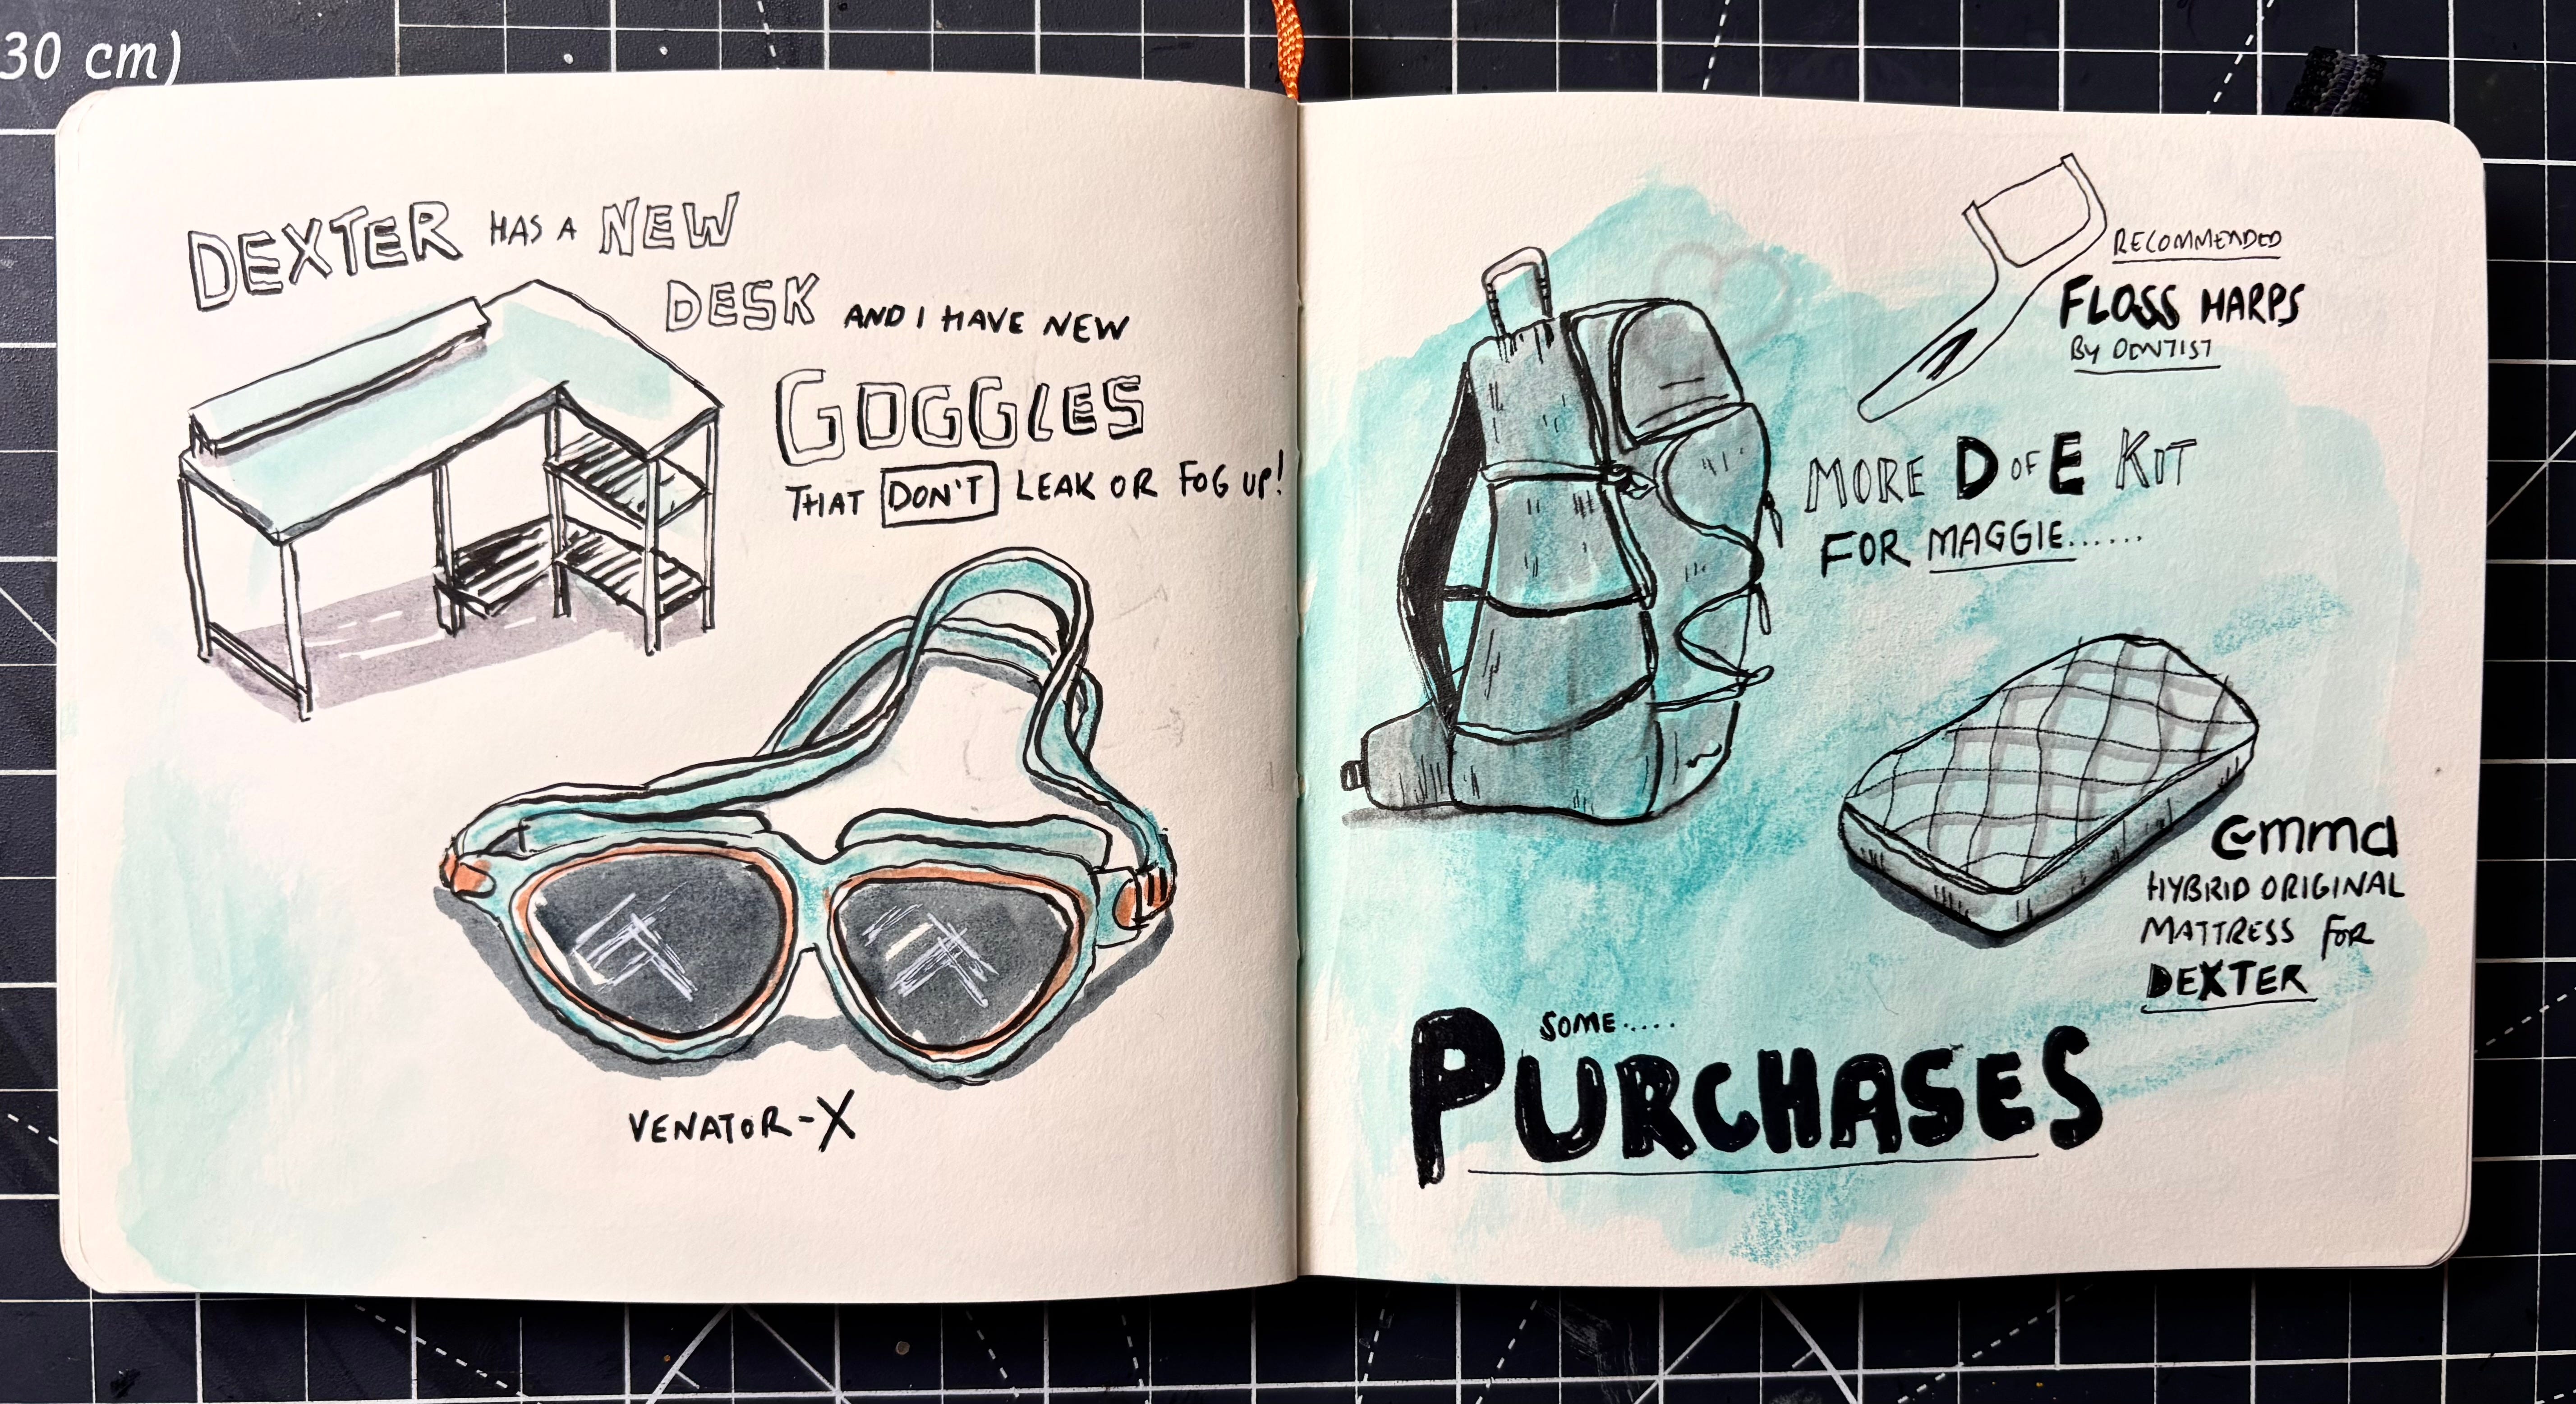 30 cm)
DEXTER HAS A NEW
DESK AND I HAVE NEW
GOGGLES
THAT DON'T LEAK OR FOG UP!
VENATOR-X
RECOMMENDED
FLOSS HARPS
BY DENTIST
MORE D OF E KIT
FOR MAGGIE......
emma
HYBRID ORIGINAL
MATTRESS FOR
DEXTER
SOME.....
PURCHASES